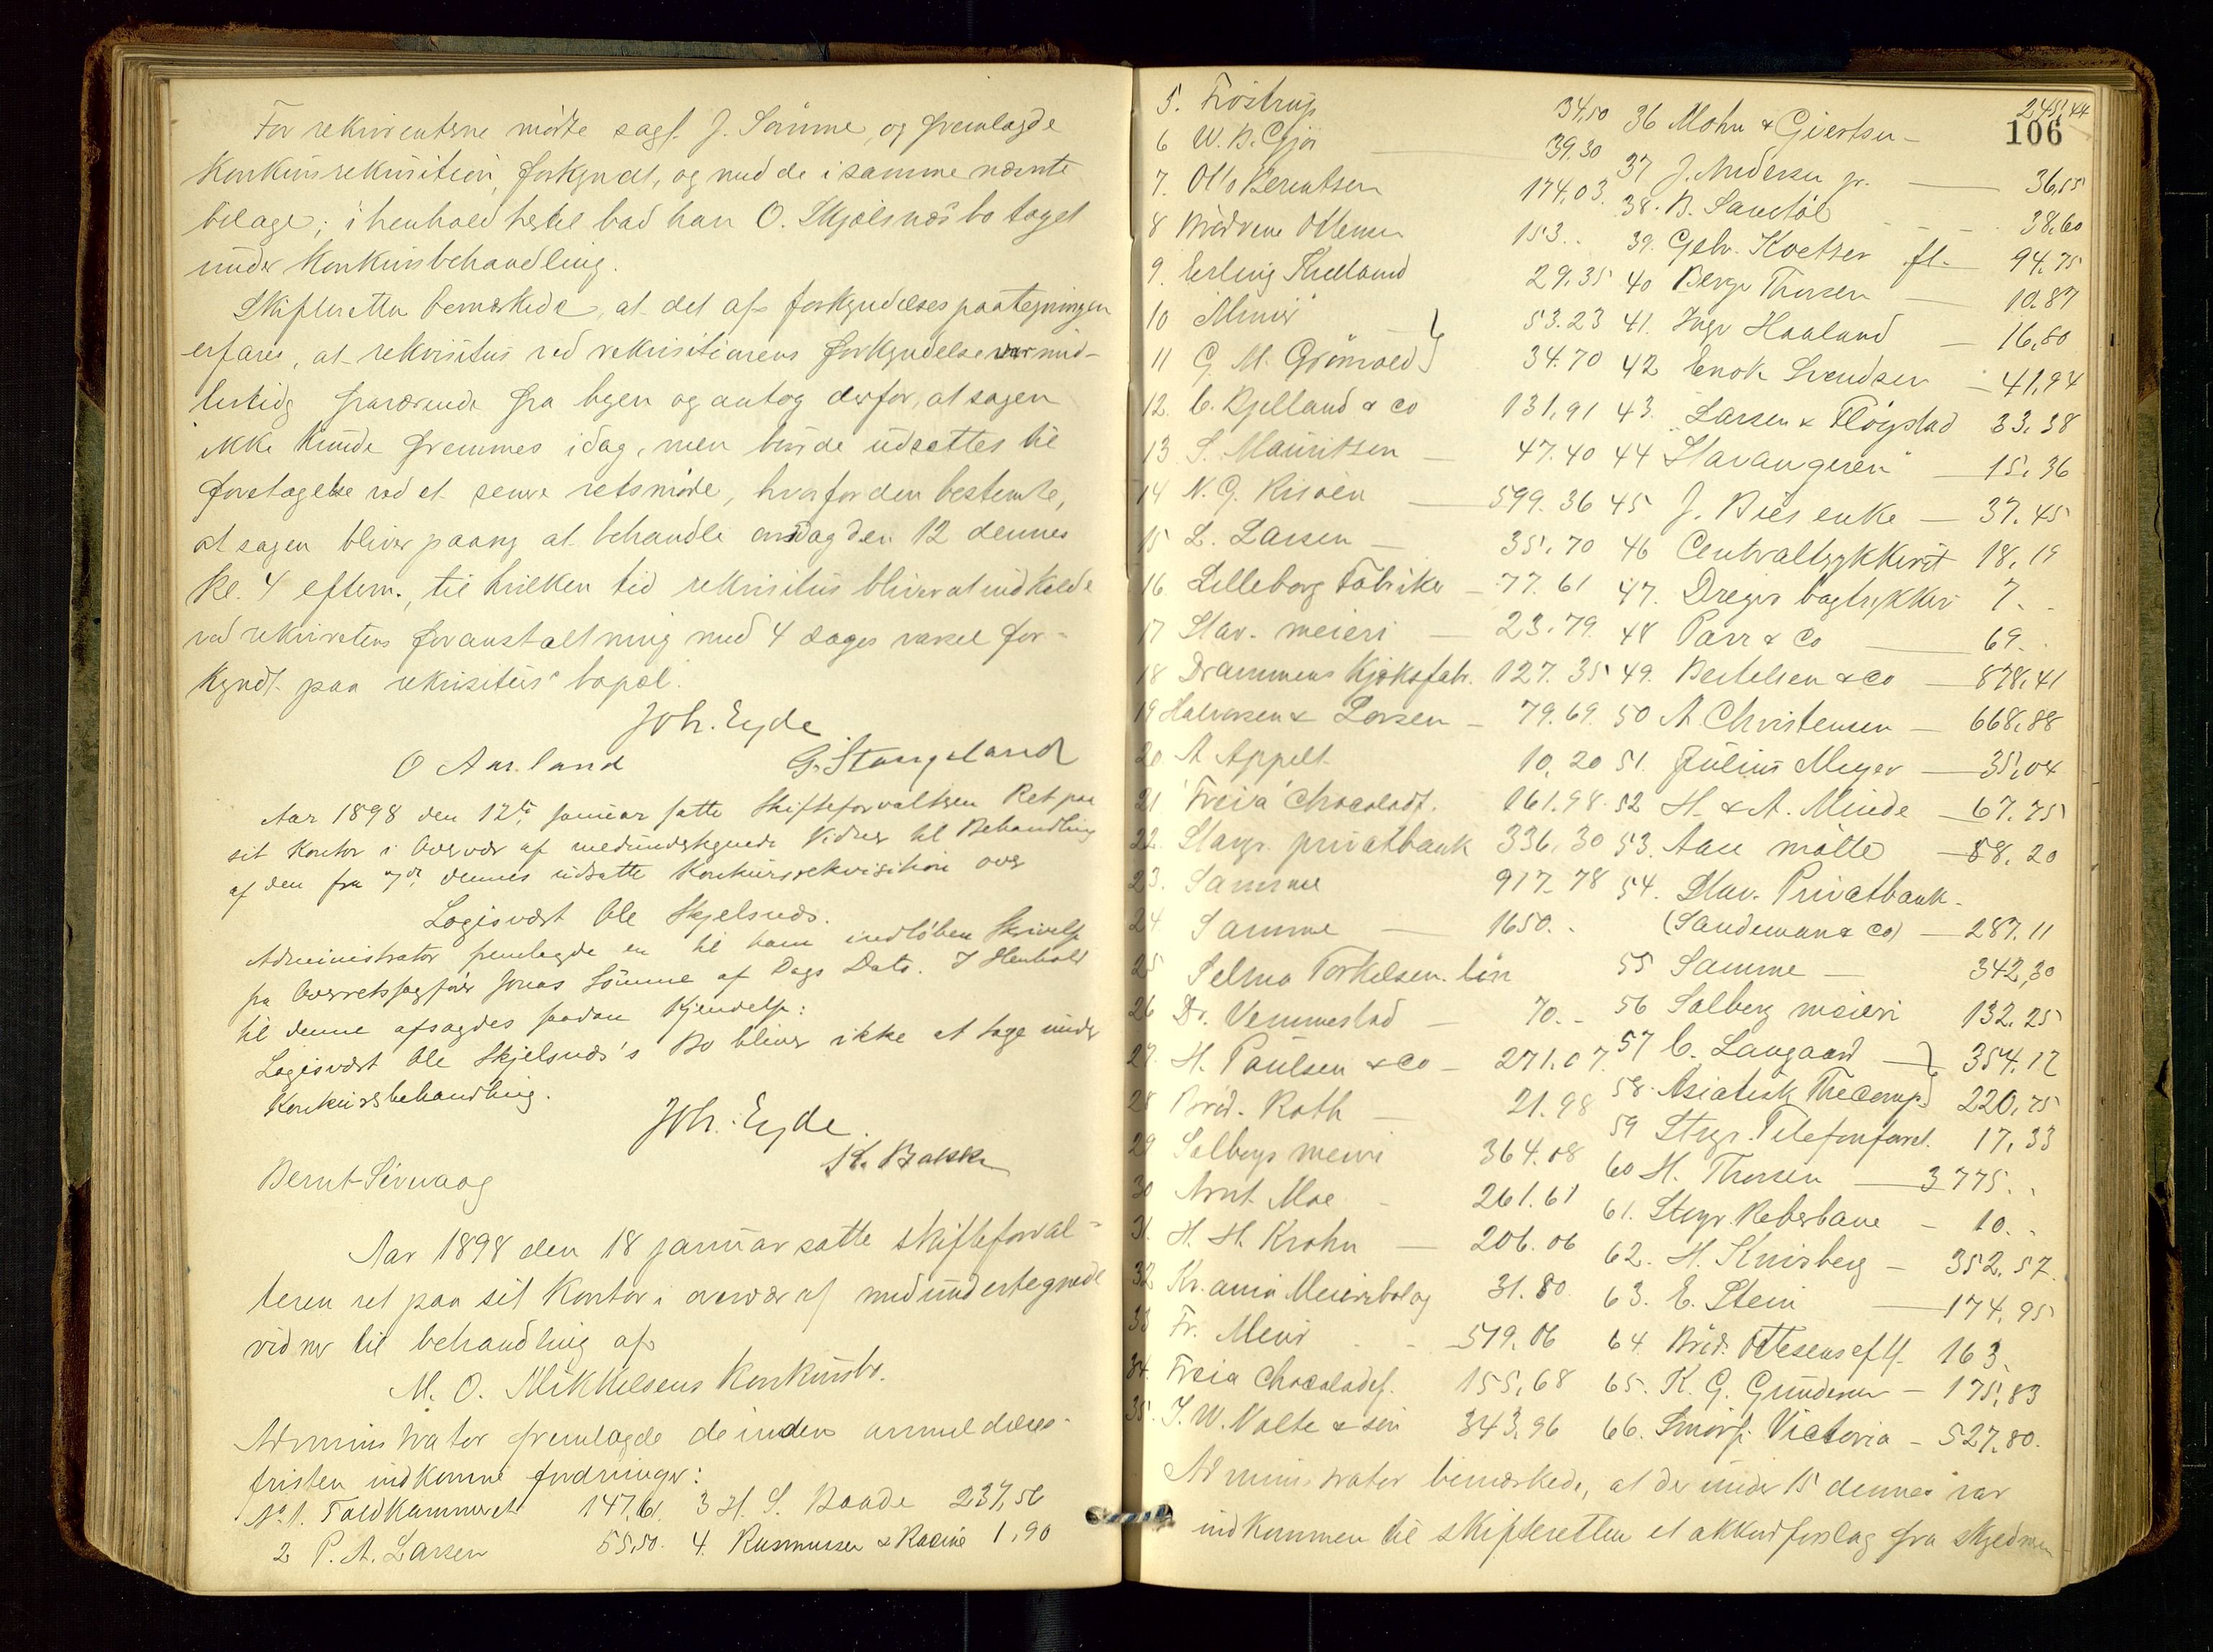 For rekvirenterne mødte sagf. J. Sømme, og fremlagde
konkursrekvisition, forkyndt, og med de i samme nævnte
bilage; i henhold hertil bad han O. Skjølsnæs bo taget
under konkursbehandling.
Skifteretten bemærkede, at det af forkyndelsespaategningen
erfares, at rekvisitus ved rekvisitionens forkyndelse var mid-
lertidig fraværende fra byen og antog derfor, at sagen
ikke kunde fremmes idag, men burde udsættes til
foretagelse ved et senere retsmøde, hvorfor den bestemte,
at sagen bliver paany at behandle onsdag den 12 dennes
kl. 4 efterm., til hvilken tid rekvisitus bliver at indkalde
ved rekvirentens foranstaltning med 4 dages varsel for-
kyndt paa rekvisitus' bopæl.
Joh. Eyde
O Aarland G. Stangeland
Aar 1898 den 12te Januar satte Skifteforvalteren Ret paa
sit Kontor i Overvær af medundertegnede Vidner til Behandling
af den fra 7de dennes udsatte Konkursrekvisition over
Logisvært Ole Skjelsnæs.
Administrator fremlagde en til ham indløben Skrivelse
fra Overretssagfører Jonas Sømme af Dags Dato. I Henhold
til denne afsagdes saadan Kjendelse:
Logisvært Ole Skjelsnæs's Bo bliver ikke at tage under
Konkursbehandling.
Joh. Eyde
Bernt Sirevaag
Aar 1898 den 18 januar satte skifteforval-
teren ret paa sit kontor i overvær af medundertegnede
vidner til behandling af
M. O. Mikkelsens konkursbo.
Administrator fremlagde de inden anmeldelses-
fristen indkomne fordringer:
No 1. Toldkammeret 147,61. 3 H. S. Baade 237,56
2 P. A. Larsen 55,50. 4. Rasmussen & Racine 1,90
106
5. Frøstrup 34,50 36 Mohn & Giertsen - 245,44
6 W. B. Gjør 39.30 37 J. Andersen jr. 36,55
7. Otto Berentsen 174,03. 38. B. Sandtøl 38,60
8 Brødrene Ottesen 153.. 39. Gebr. Koetser fl. 94,75
9. Erling Thulland 29.35 40 Berge Thorsen 10.87
10 "Minør" 53.23 41. Ingv Haaland 16,80
11 G. M. Grønvold 34.70 42 Enok Svendsen 41,94
12. C. Kjelland & co 131,91 43. Larsen & Fløgstad 33.38
13 S. Mauritsen 47.40 44 "Stavangeren" 15.36
14 N. G. Risøen 599.36 45 J. Biesenke 37.45
15 L. Larsen 35.70 46 Centraltrykkeriet 18,19
16. Lilleborg Fabriker 77.61 47. Dreyer bogtrykkeri 7..
17 Stav. meieri 23.79 48 Parr & Co 69..
18 Drammens Kjæksfabr. 127.35 49. Bertelsen & co 878,41
19 Halvorsen & Larsen 79.69 50 A Christensen 668,88
20 A. Appelt 10,20 51. Julius Meyer 35,04
21 "Freia" Chocoladf. 161.98 52 H. & A. Minde 67.75
22. Stavgr. privatbank 336,30 53. Aau mølle 58,20
23. Samme 917.78 54. Stav. Privatbank
24 Samme 1650.. (Sandeman & Co) 287.11
25 Selma Torkelsen. løn 55 Samme 342,30
26 Dr. Vemmestad 70.. 56 Salberg meieri 132.25
27. H. Paulsen & co 271.07. 57 C. Langaard 354.12
28 Brød. Rath 21.98 58. Asiatisk Thecomp. 220,75
29 Salbergs meieri 364.08 59 Stvgr. Telefonforel. 17,33
30 Arnt Moe 261.61 60 H. Thorsen 3775..
31. H. H. Krohn 206.06 61. Stvgr. Reberbane 10..
32 Kr.ania Meieribolag 31.80 62. H. Knisberg 352.57.
33 Fr. Meier 519.06 63. E. Stein 174.95
34. Freia Chocoladef. 155,68 64 Brød. Ottesens eftf. 163.
35. J. W. Nolte & søn 343.96 65. K. G. Gundersen 175,83
66. Smørf. Victoria 527,80.
Administrator bemærkede, at der under 15 dennes var
indkommen til skifteretten et akkordforslag fra skyldneren